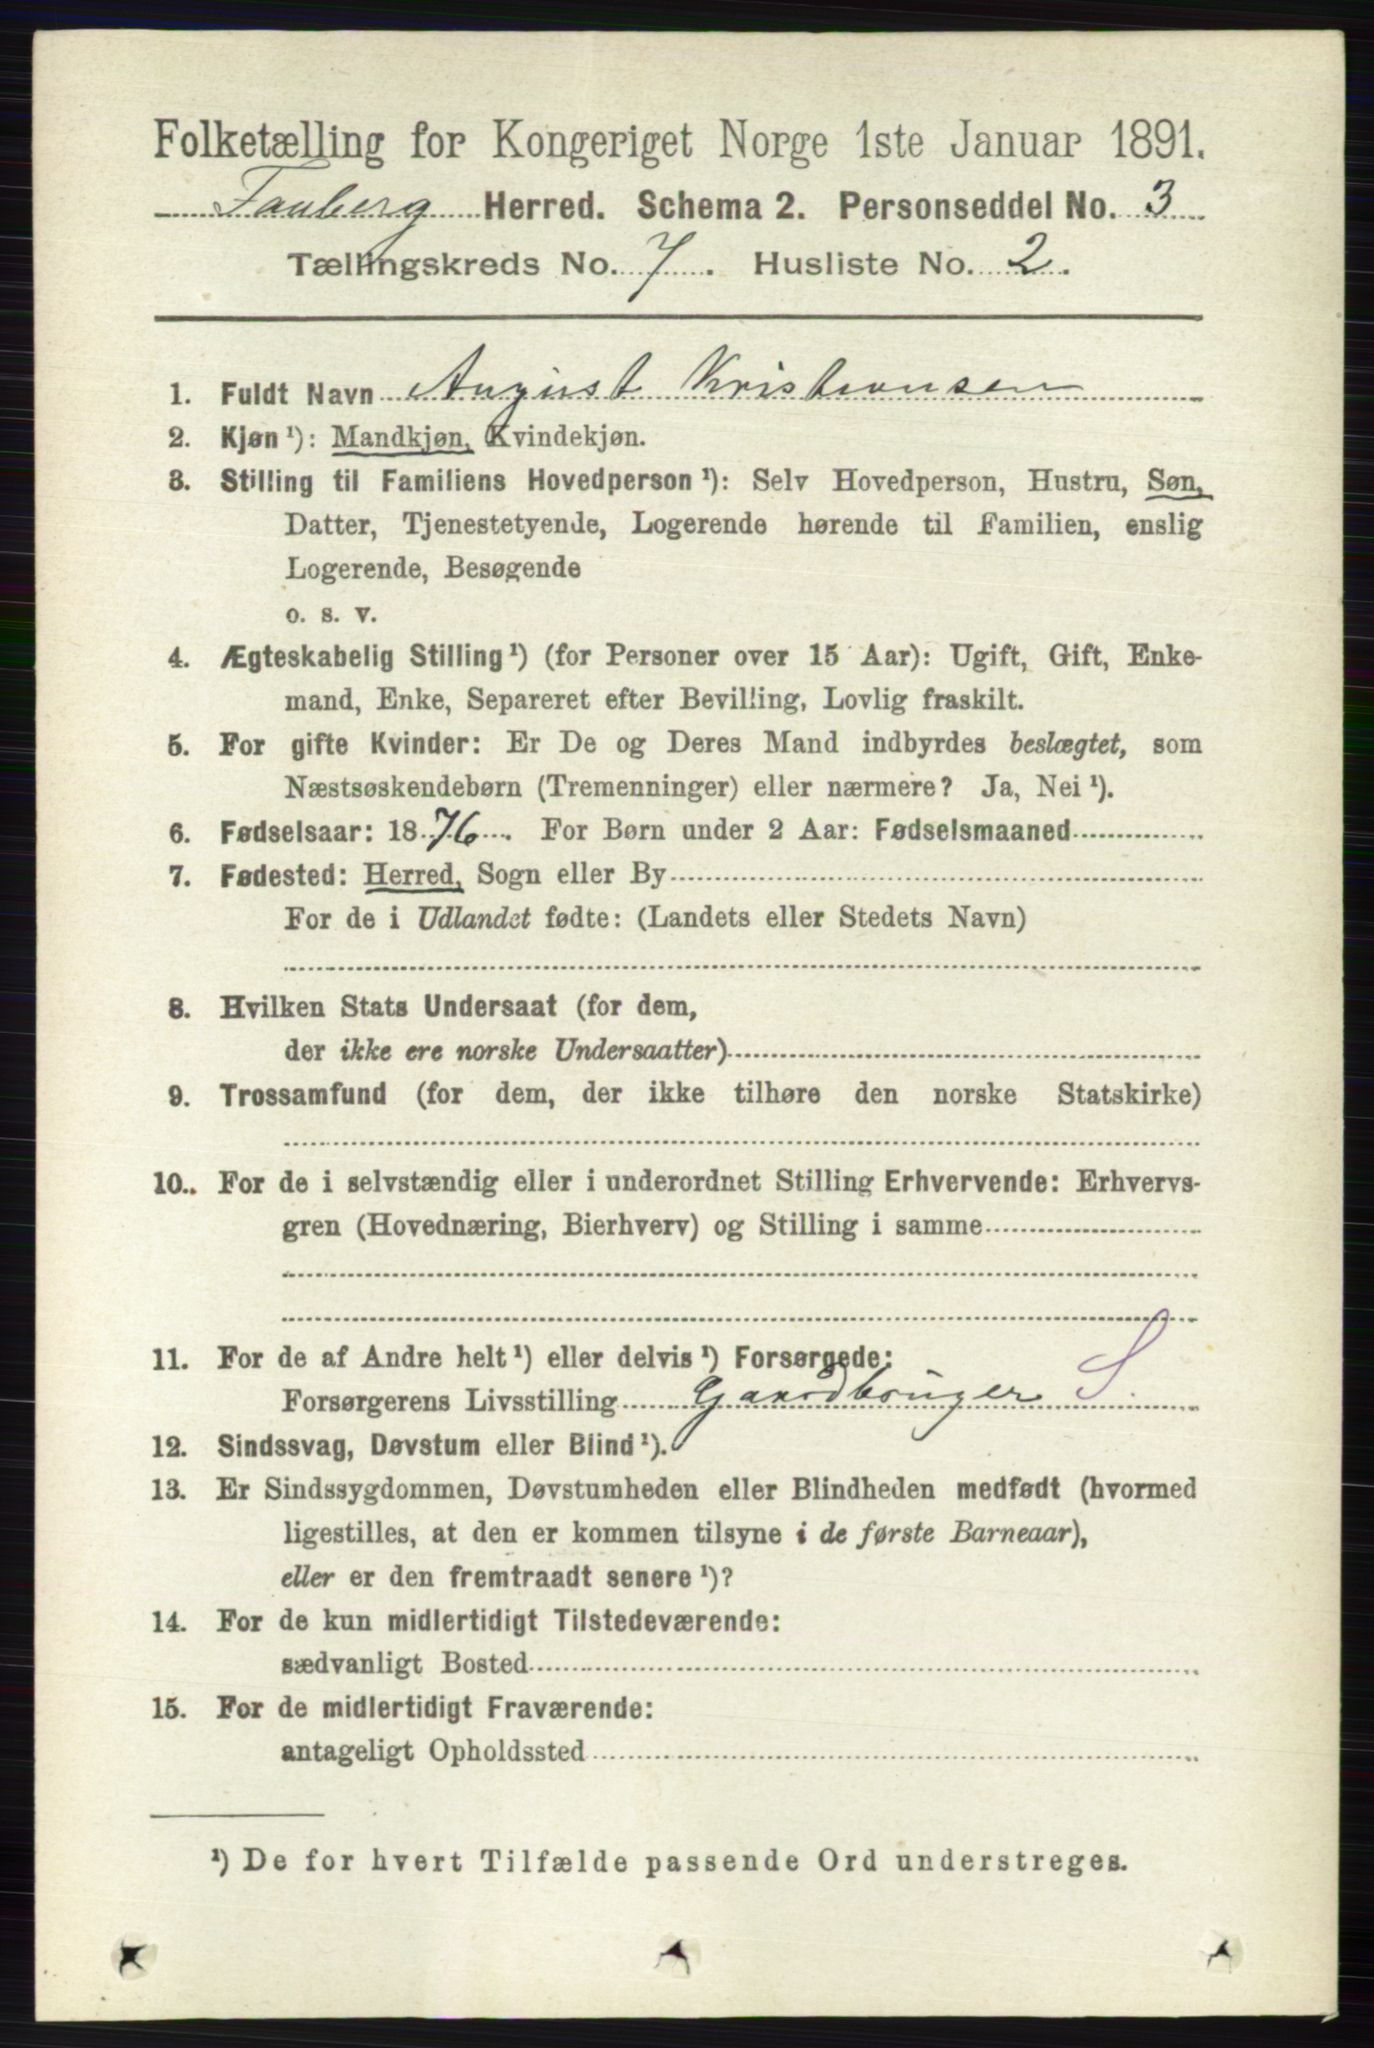 Folketælling for Kongeriget Norge 1ste Januar 1891.
Fauberg Herred. Schema 2. Personseddel No. 3
Tællingskreds No. 7. Husliste No. 2.
1. Fuldt Navn August Kristiansen
2. Kjøn¹): Mandkjøn, Kvindekjøn.
3. Stilling til Familiens Hovedperson¹): Selv Hovedperson, Hustru, Søn,
Datter, Tjenestetyende, Logerende hørende til Familien, enslig
Logerende, Besøgende
o. s. v.
4. Ægteskabelig Stilling¹) (for Personer over 15 Aar): Ugift, Gift, Enke-
mand, Enke, Separeret efter Bevilling, Lovlig fraskilt.
5. For gifte Kvinder: Er De og Deres Mand indbyrdes beslægtet, som
Næstsøskendebørn (Tremenninger) eller nærmere? Ja, Nei¹).
6. Fødselsaar: 1876. For Børn under 2 Aar: Fødselsmaaned
7. Fødested: Herred, Sogn eller By
For de i Udlandet fødte: (Landets eller Stedets Navn)
8. Hvilken Stats Undersaat (for dem,
der ikke ere norske Undersaatter)
9. Trossamfund (for dem, der ikke tilhøre den norske Statskirke)
10.. For de i selvstændig eller i underordnet Stilling Erhvervende: Erhvervs-
gren (Hovednæring, Bierhverv) og Stilling i samme
11. For de af Andre helt¹) eller delvis¹) Forsørgede:
Forsørgerens Livsstilling Gaardbruger S.
12. Sindssvag, Døvstum eller Blind¹).
13. Er Sindssygdommen, Døvstumheden eller Blindheden medfødt (hvormed
ligestilles, at den er kommen tilsyne i de første Barneaar),
eller er den fremtraadt senere¹)?
14. For de kun midlertidigt Tilstedeværende:
sædvanligt Bosted
15. For de midlertidigt Fraværende:
antageligt Opholdssted
¹) De for hvert Tilfælde passende Ord understreges.